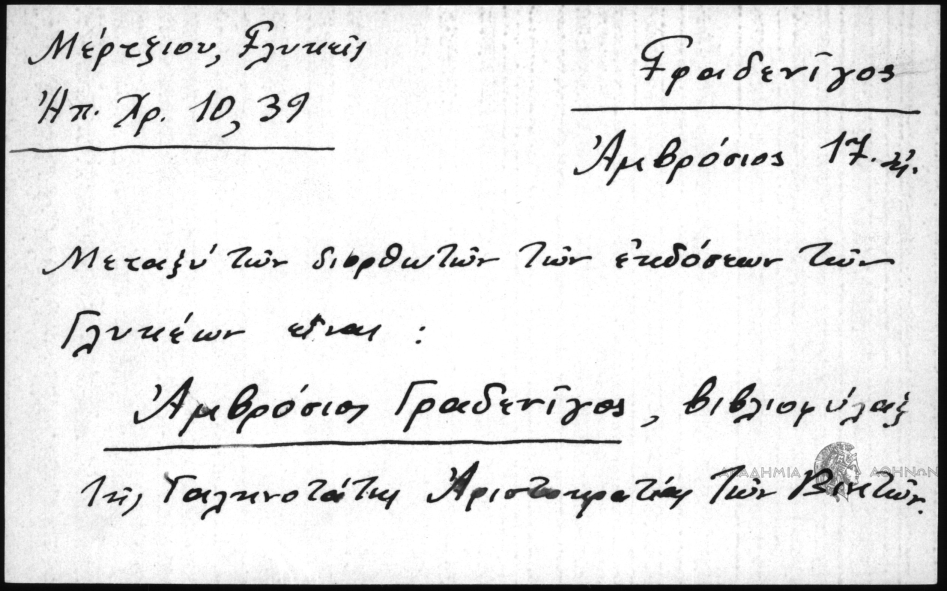 Μέρτζιου, Γλυκεῖς
Ἠπ. Χρ. 10, 39
Γραδενῖγος
Ἀμβρόσιος 17. αἰ.
Μεταξύ τῶν διορθωτῶν τῶν ἐκδόσεων τῶν
Γλυκέων εἶναι :
Ἀμβρόσιος Γραδενῖγος, βιβλιοφύλαξ
τῆς Γαληνοτάτης Ἀριστοκρατίας τῶν Βενετῶν.
ΑΚΑΔΗΜΙΑ ΑΘΗΝΩΝ